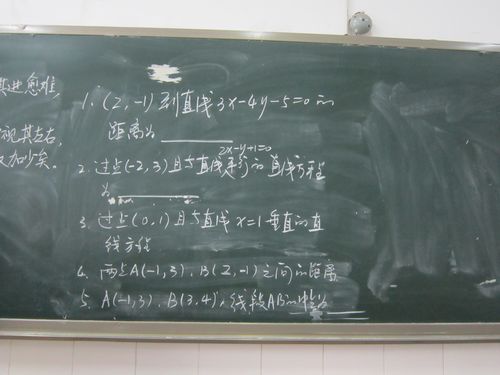 其进愈难,
视其左右,
又加少矣。
1. (2, -1) 到直线 3x-4y-5=0 的
距离为
2x-y+1=0
2. 过点(-2, 3) 且与直线平行的直线方程
为
3. 过点(0, 1) 且与直线 x=1 垂直的直
线方程
4. 两点A(-1, 3), B(2, -1) 之间的距离
5. A(-1, 3), B(3, 4), 线段AB的中点为